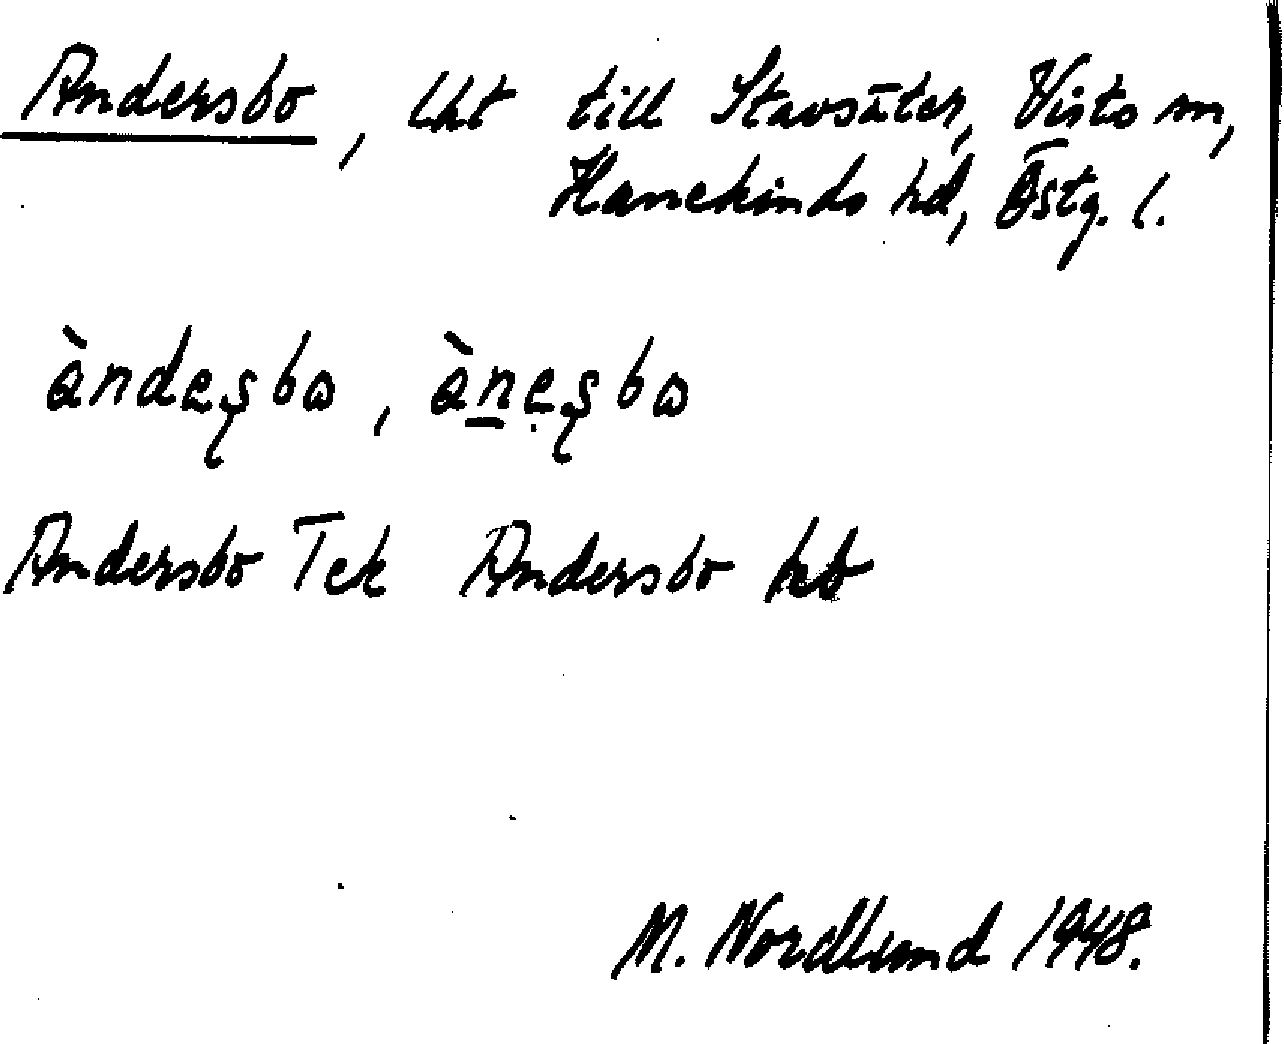 Andersbo, lht till Stavsäter, Vists sn,
Hanekinds hd, Östg. l.
àndeʂbɷ, àn̲ẹʂbɷ
Andersbo Tek Andersbo hb
M. Nordlund 1948.